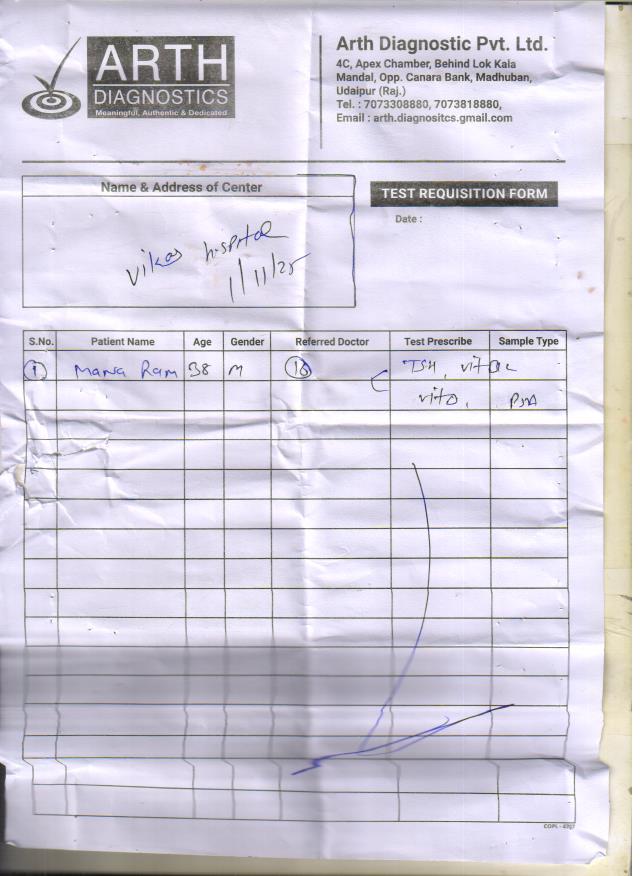 ARTH
DIAGNOSTICS
Meaningful, Authentic & Dedicated
Arth Diagnostic Pvt. Ltd.
4C, Apex Chamber, Behind Lok Kala
Mandal, Opp. Canara Bank, Madhuban,
Udaipur (Raj.)
Tel. : 7073308880, 7073818880,
Email : arth.diagnositcs.gmail.com
Name & Address of Center
TEST REQUISITION FORM
Date :
vikas hospital
1/11/25
S.No. Patient Name Age Gender Referred Doctor Test Prescribe Sample Type
1 Mana Ram 38 M TSH, vit
vit D, PSA